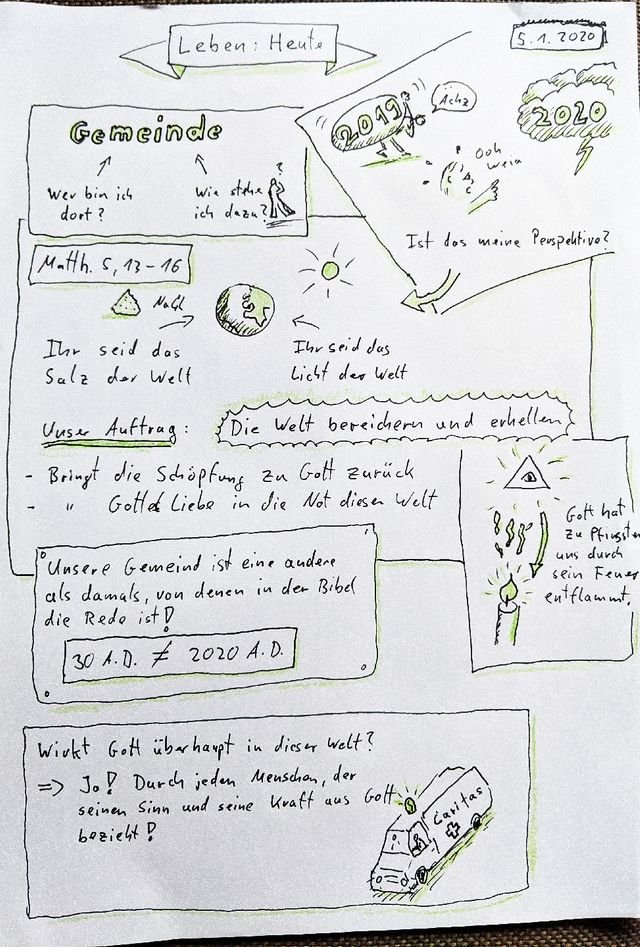 Leben: Heute
5.1.2020
Gemeinde
Wer bin ich
dort?
Wie stehe
ich dazu?
?
2019
Ächz
2020
Ooh
weia
Ist das meine Perspektive?
Matth. 5, 13-16
NaCl
Ihr seid das
Salz der Welt
Ihr seid das
Licht der Welt
Unser Auftrag:
Die Welt bereichern und erhellen
- Bringt die Schöpfung zu Gott zurück
- " Gottes Liebe in die Not dieser Welt
Gott hat
zu Pfingsten
uns durch
sein Feuer
entflammt.
Unsere Gemeind ist eine andere
als damals, von denen in der Bibel
die Rede ist!
30 A.D. ≠ 2020 A.D.
Wirkt Gott überhaupt in dieser Welt?
=> Ja! Durch jeden Menschen, der
seinen Sinn und seine Kraft aus Gott
bezieht!
Caritas